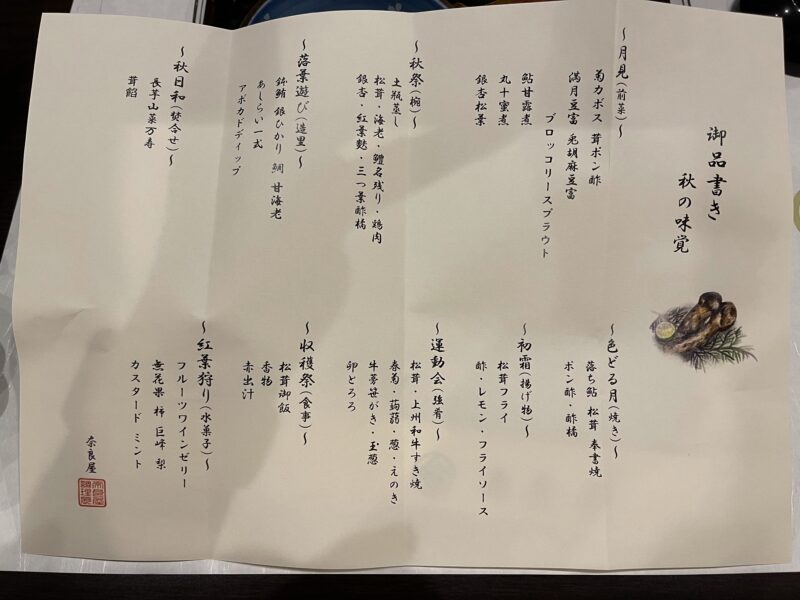 御品書き
秋の味覚
～月見(前菜)～
菊カボス 茸ポン酢
満月豆富 兎胡麻豆富
ブロッコリースプラウト
鮎甘露煮
丸十蜜煮
銀杏松葉
～秋祭(椀)～
土瓶蒸し
松茸・海老・鱧名残り・鶏肉
銀杏・紅葉麩・三つ葉酢橘
～落葉遊び(造里)～
鉾鮪 銀ひかり 鯛 甘海老
あしらい一式
アボカドディップ
～秋日和(焚合せ)～
長芋山菜万寿
茸餡
～色どる月(焼き)～
落ち鮎 松茸 奉書焼
ポン酢・酢橘
～初霜(揚げ物)～
松茸フライ
酢・レモン・フライソース
～運動会(強肴)～
松茸・上州和牛すき焼
春菊・蒟蒻・葱・えのき
牛蒡笹がき・玉葱
卵とろろ
～収穫祭(食事)～
松茸御飯
香物
赤出汁
～紅葉狩り(水菓子)～
フルーツワインゼリー
無花果 柿 巨峰 梨
カスタード ミント
奈良屋